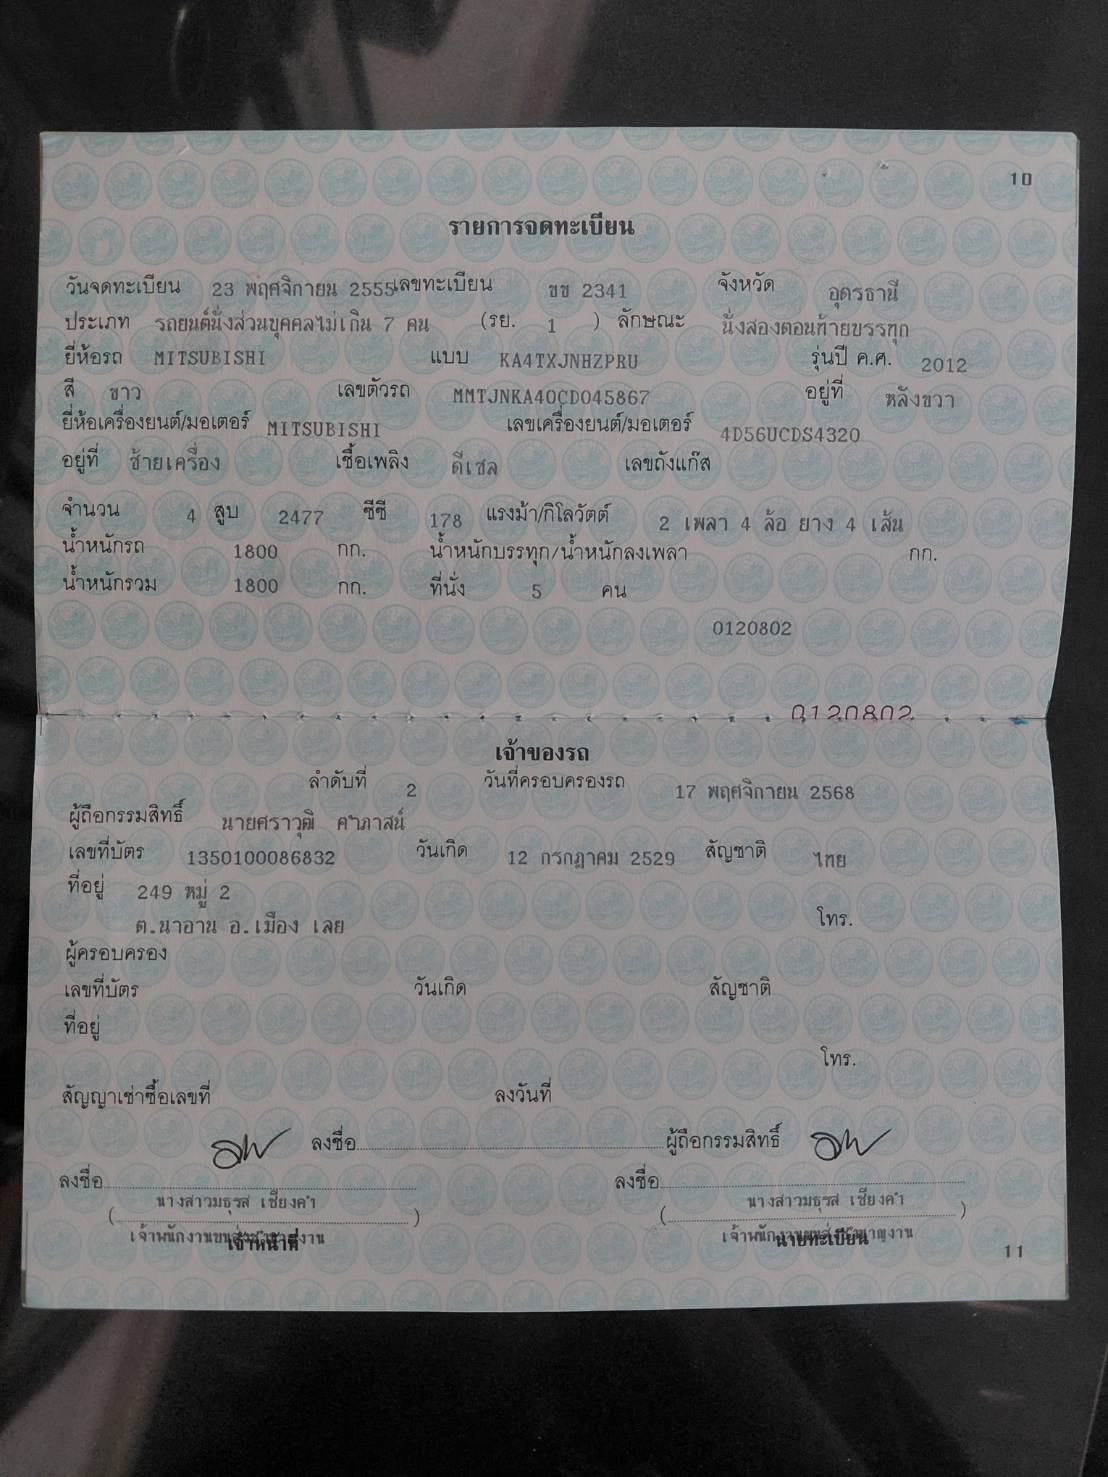 10
รายการจดทะเบียน
วันจดทะเบียน 23 พฤศจิกายน 2555 เลขทะเบียน ขข 2341 จังหวัด อุดรธานี
ประเภท รถยนต์นั่งส่วนบุคคลไม่เกิน 7 คน (รย. 1 ) ลักษณะ นั่งสองตอนท้ายบรรทุก
ยี่ห้อรถ MITSUBISHI แบบ KA4TXJNHZPRU รุ่นปี ค.ศ. 2012
สี ขาว เลขตัวรถ MMTJNKA40CD045867 อยู่ที่ หลังขวา
ยี่ห้อเครื่องยนต์/มอเตอร์ MITSUBISHI เลขเครื่องยนต์/มอเตอร์ 4D56UCDS4320
อยู่ที่ ซ้ายเครื่อง เชื้อเพลิง ดีเซล เลขถังแก๊ส
จำนวน 4 สูบ 2477 ซีซี 178 แรงม้า/กิโลวัตต์ 2 เพลา 4 ล้อ ยาง 4 เส้น
น้ำหนักรถ 1800 กก. น้ำหนักบรรทุก/น้ำหนักลงเพลา กก.
น้ำหนักรวม 1800 กก. ที่นั่ง 5 คน
0120802
0120802
เจ้าของรถ
ลำดับที่ 2 วันที่ครอบครองรถ 17 พฤศจิกายน 2568
ผู้ถือกรรมสิทธิ์ นายศราวุฒิ
เลขที่บัตร 1350100086832 วันเกิด 12 กรกฎาคม 2529 สัญชาติ ไทย
ที่อยู่ 249 หมู่ 2
ต.นาอาน อ.เมือง เลย โทร.
ผู้ครอบครอง
เลขที่บัตร วันเกิด สัญชาติ
ที่อยู่
โทร.
สัญญาเช่าซื้อเลขที่ ลงวันที่
ลงชื่อ ผู้ถือกรรมสิทธิ์
ลงชื่อ ลงชื่อ
นางสาวมธุรส เชียงคำ นางสาวมธุรส เชียงคำ
( ) ( )
เจ้าหน้าที่ นายทะเบียน
11